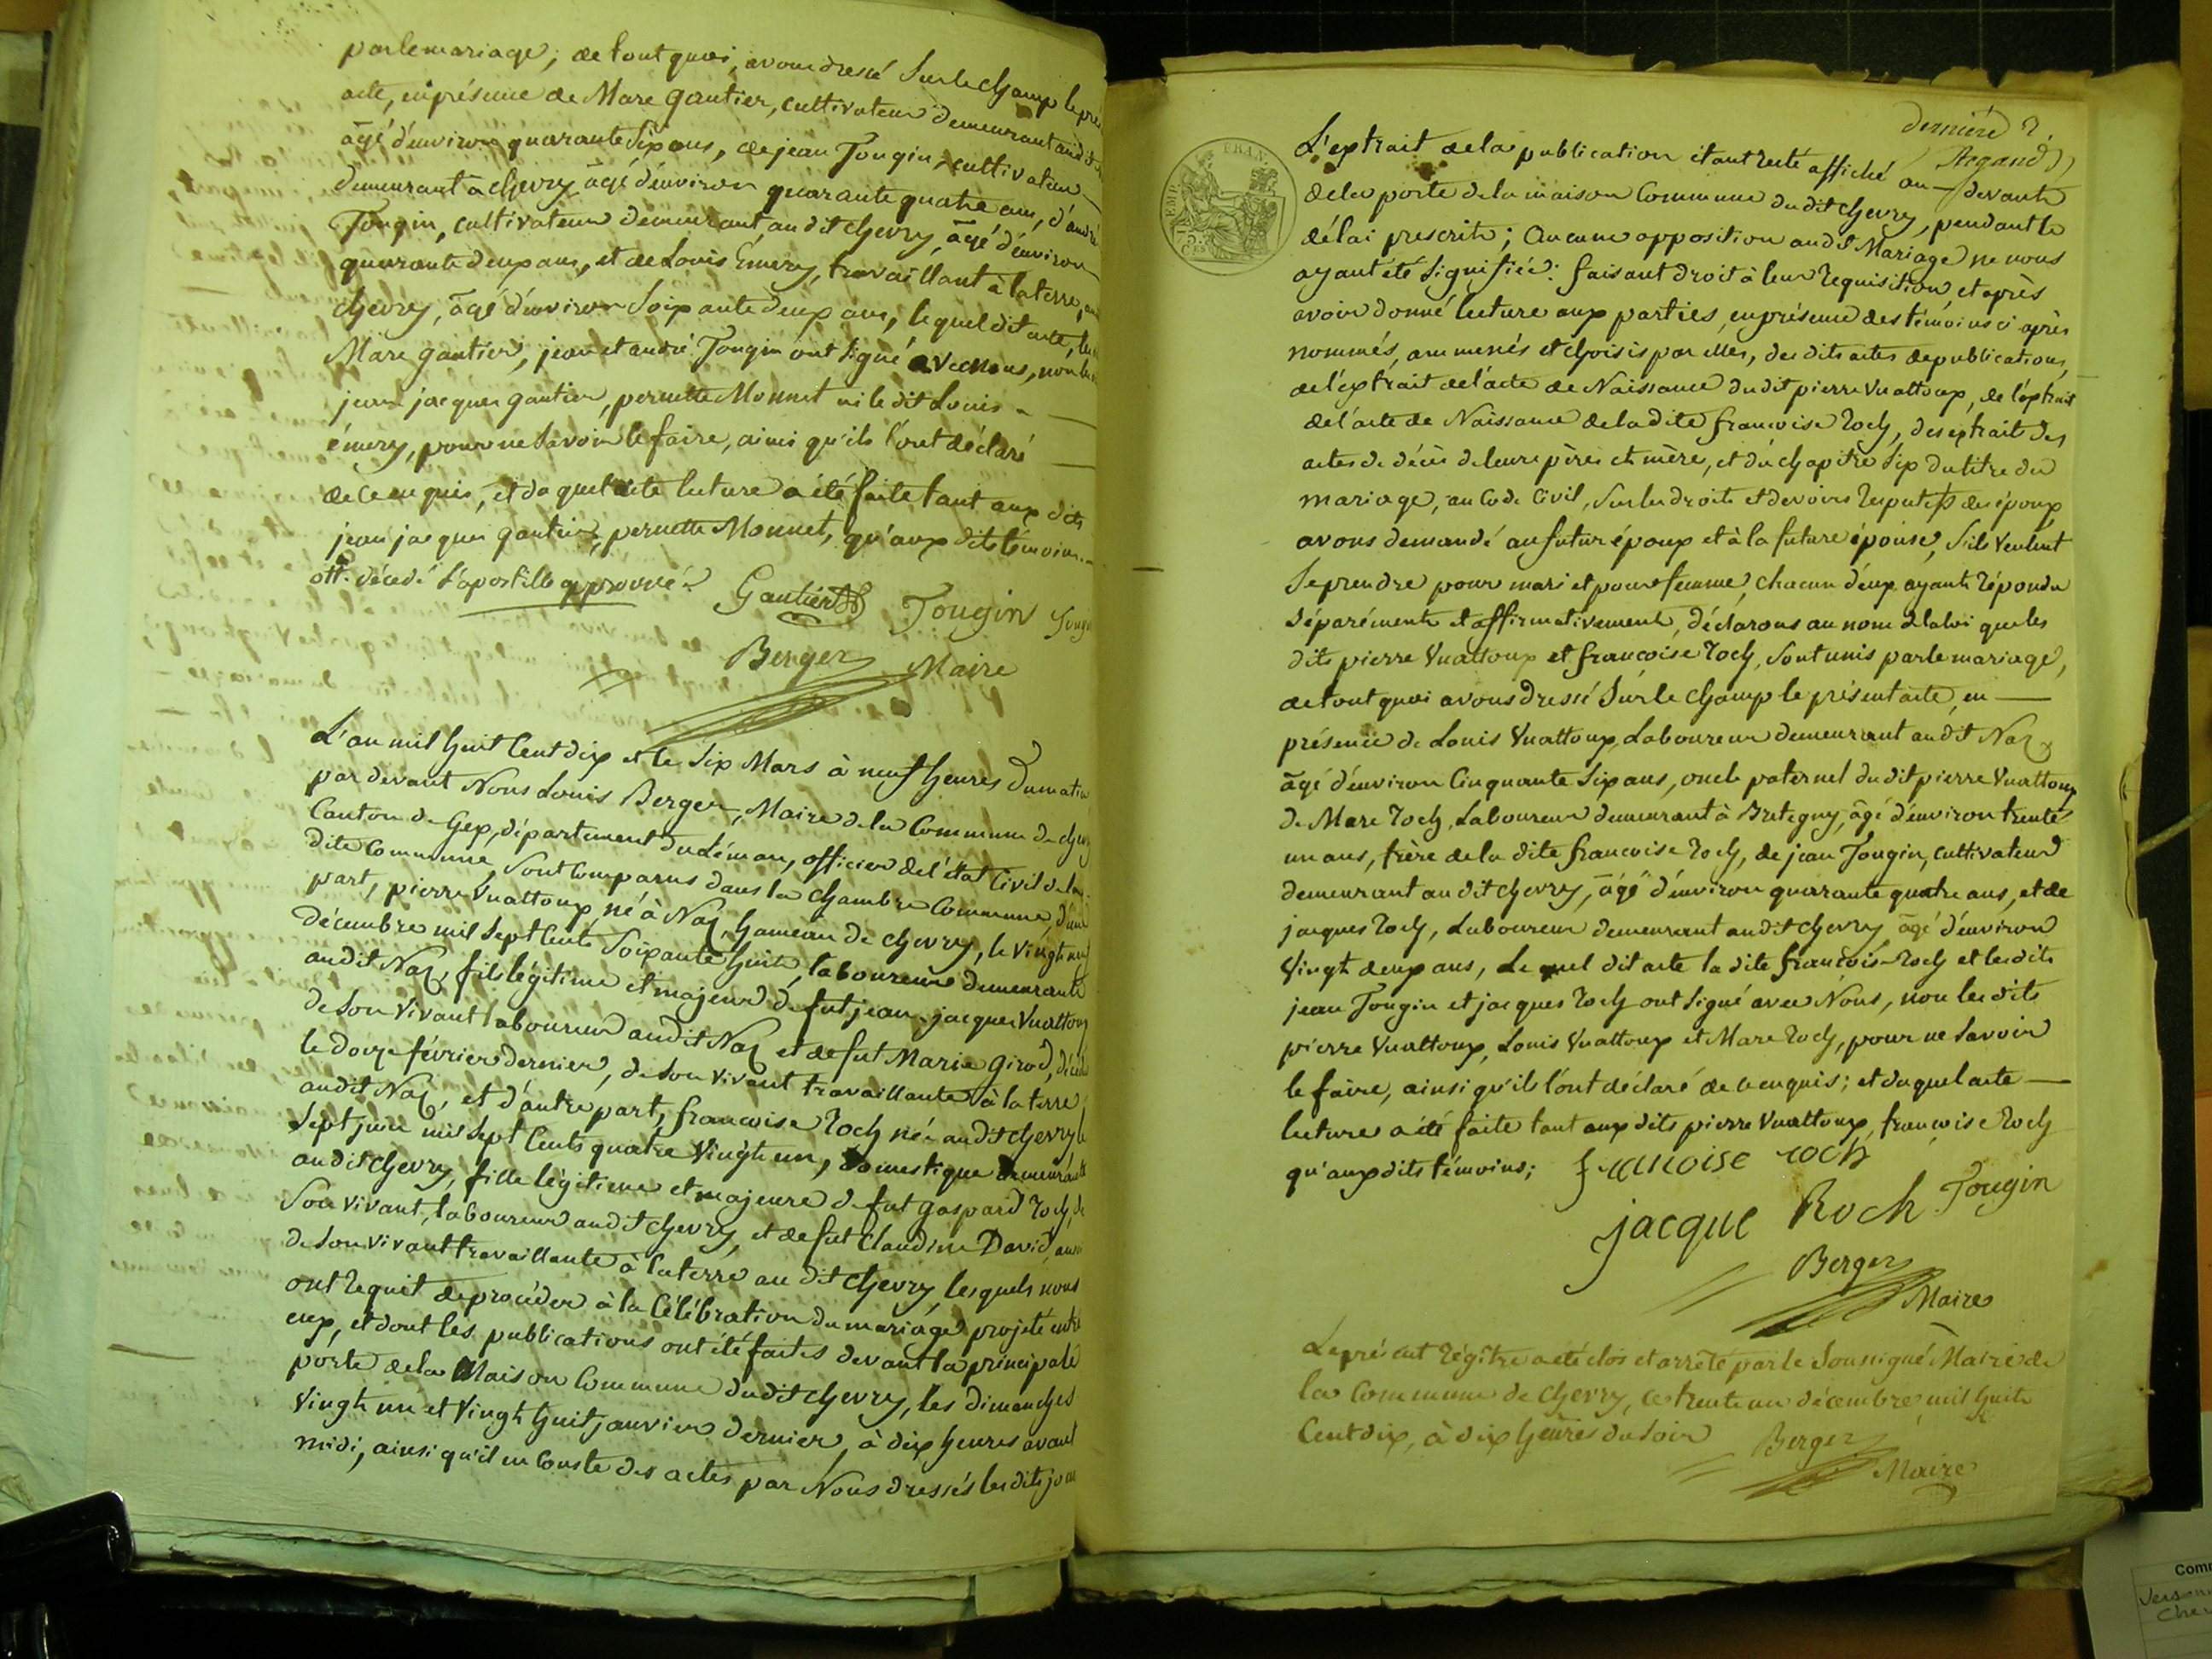 par le mariage; de tout quoi, avons dressé Sur le champ le pré
acte, en présence de Marc gautier, cultivateur demeurant audit
âgé d'environ quarante Six ans, de jean Tougin, cultivateur
demeurant à chevry âgé d'environ quarante quatre ans, d'andré
Tougin, cultivateur demeurant au dit chevry, âgé d'environ
quarante deux ans, et de Louis Emery, travaillant à la terre, au
chevry, âgé d'environ Soixante deux ans, lequel dit acte, les
Marc gautier, jean et andré Tougin ont Signé avec nous, non les
jean jacques gautier, pernette Monnet ni le dit Louis
émery, pour ne Savoir le faire, ainsi qu'ils l'ont déclaré
de ce enquis, et duquel acte lecture a été faite tant aux dits
jean jacques gautier, pernette Monnet, qu'aux dits témoins
ott. décedé l'apostille approuvé
Gautier Tougin Tougi
Berger Maire
L'an mil huit Cent dix et le Six Mars à neuf heures du matin
par devant Nous Louis Berger, Maire de la Commune de chevry
Canton de Gex, département du Léman, officier de l'état Civil de la
dite Commune, Sont Comparus dans la chambre Commune, d'une
part, pierre Vuattoux, né à Naz, hameau de chevry, le vingt neuf
décembre mil Sept Cents Soixante huit, laboureur demeurant
audit Naz, fils légitime et majeur de fut jean-jacques Vuattoux
de Son vivant laboureur audit Naz et de fut Marie Girod, décédé
le douze février dernier, de Son vivant travaillante à la terre
audit Naz, et d'autre part, françoise Roch née audit chevry le
Sept juin mil Sept Cents quatre Vingt un, domestique demeurante
audit chevry, fille légitime et majeure de fut gaspard Roch, de
Son vivant, laboureur audit chevry, et de fut Claudine David, aussi
de Son vivant travaillante à la terre au dit chevry, lesquels nous
ont Requit de procéder à la Célébration du mariage projeté entre
eux, et dont les publications ont été faites devant la principale
porte de la Maison Commune dudit chevry, les dimanches
Vingt un et Vingt huit janvier dernier, à dix heures avant
midi, ainsi qu'il en Conste des actes par Nous dressés les dits jours
dernière
Regand
L'extrait de la publication étant resté affiché au-devant
de la porte de la maison Commune du dit chevry, pendant le
délai prescrit; Aucune opposition audit Mariage ne nous
ayant été Signifiée: faisant droit à leur Requisition, et après
avoir donné lecture aux parties, en présence des témoins ci après
nommés, ammenés et choisis par elles, des dits actes de publications,
de l'extrait de l'acte de Naissance du dit pierre Vuattoux, de l'extrait
de l'acte de Naissance de la dite françoise Roch, des extraits des
actes de décès de leurs pères et mère, et du chapitre Six du titre du
mariage, au Code Civil, Sur les droits et devoirs Respectifs des époux
avons demandé au futur époux et à la future épouse, S'ils Veulent
Se prendre pour mari et pour femme, chacun d'eux ayant Répondu
Séparément et affirmativement, déclarons au nom de la loi que les
dits pierre Vuattoux et françoise Roch, Sont unis par le mariage,
de tout quoi avons dressé Sur le champ le présent acte, en
présence de Louis Vuattoux, Laboureur demeurant audit Naz
âgé d'environ Cinquante Six ans, oncle paternel du dit pierre Vuattoux
de Marc Roch, Laboureur demeurant à Bretegny, âgé d'environ trente
un ans, frère de la dite françoise Roch, de jean Tougin, cultivateur
demeurant audit chevry, âgé d'environ quarante quatre ans, et de
jacques Roch, Laboureur demeurant audit chevry âgé d'environ
Vingt deux ans, Lequel dit acte la dite françoise Roch et les dits
jean Tougin et jacques Roch ont Signé avec Nous, non les dits
pierre Vuattoux, Louis Vuattoux et Marc Roch, pour ne Savoir
le faire, ainsi qu'ils l'ont déclaré de ce enquis; et duquel acte
lecture a été faite tant aux dits pierre Vuattoux, françoise Roch
qu'aux dits témoins; françoise roch
jacque Roch Tougin
Berger
Maire
Le présent Régître a été clos et arrêté par le Soussigné Maire de
la Commune de chevry, ce trente un décembre mil huit
Cent dix, à dix heures du Soir Berger
Maire
Comm
Verson
Chev